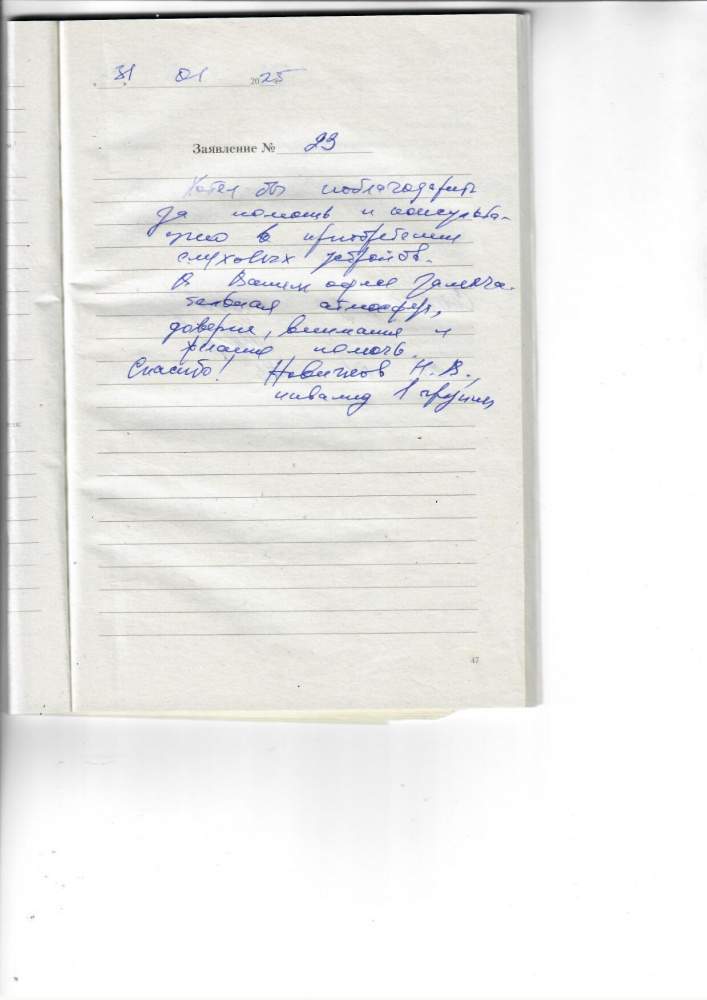 31 01 2025
Заявление № 23
Хотел бы поблагодарить
за помощь и консульта-
цию в приобретении
слуховых устройств.
В Вашем офисе замеча-
тельная атмосфера,
доверия, внимания и
желания помочь.
Спасибо! Новичков Н. В.,
инвалид 1 группы
47